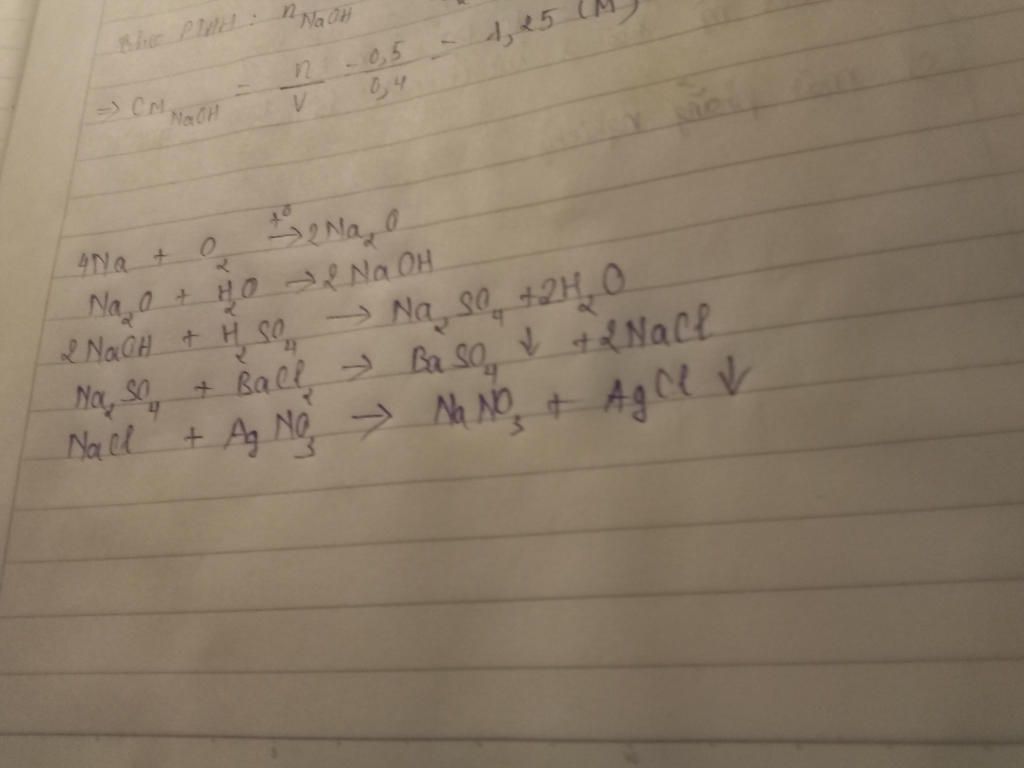 PTHH : n NaOH
=> CM NaOH = n/V = 0,5/0,4 = 1,25 (M)
4Na + O₂ –t°→ 2Na₂O
Na₂O + H₂O → 2NaOH
2NaOH + H₂SO₄ → Na₂SO₄ + 2H₂O
Na₂SO₄ + BaCl₂ → BaSO₄ ↓ + 2NaCl
NaCl + AgNO₃ → NaNO₃ + AgCl ↓